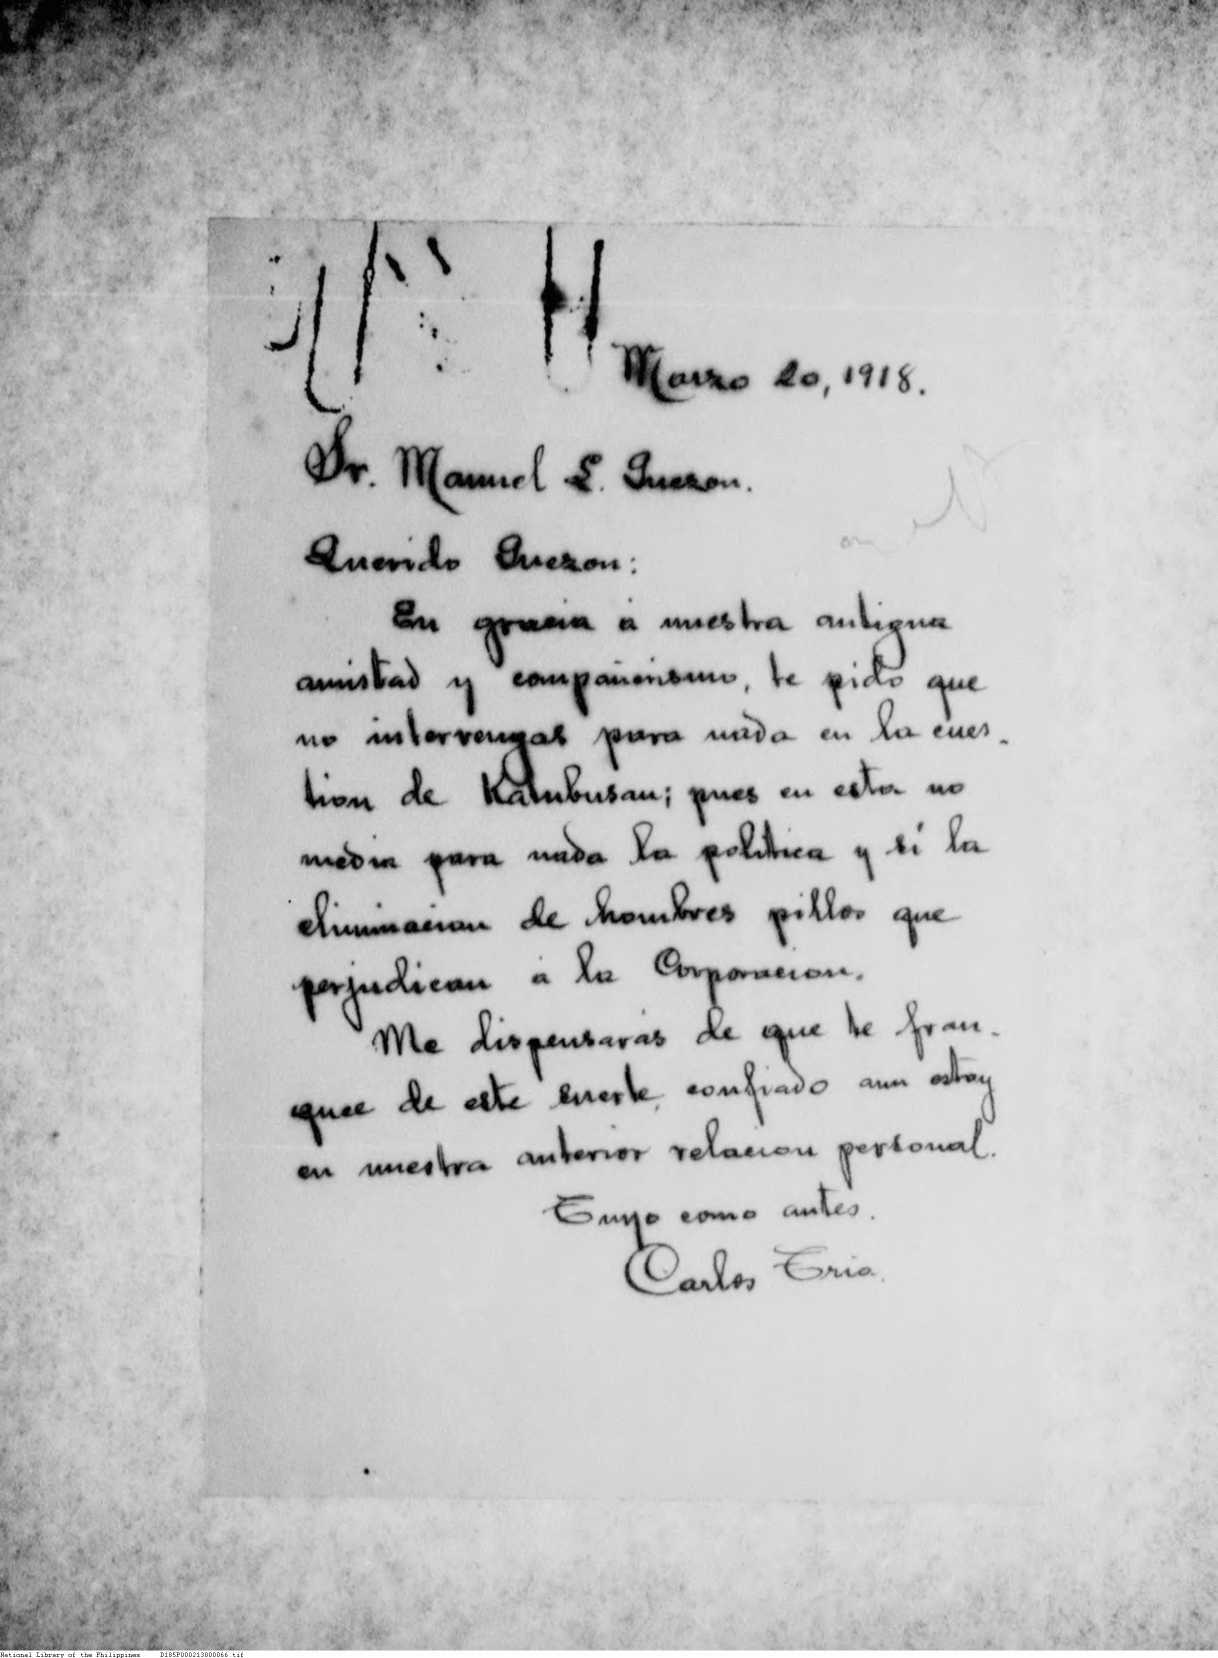 Marzo 20, 1918.
Sr. Manuel L. Quezon.
Querido Quezon:
En gracia á nuestra antigua
amistad y compañerismo, te pido que
no intervengas para nada en la cues-
tion de Katubusan; pues en esta no
media para nada la politica y sí la
eliminacion de hombres pillos que
perjudican á la Corporacion.
Me dispensarás de que te fran-
quee de este suerte, confiado aun estoy
en nuestra anterior relacion personal.
Tuyo como antes.
Carlos Tria.
National Library of the Philippines D185P000213800066.tif